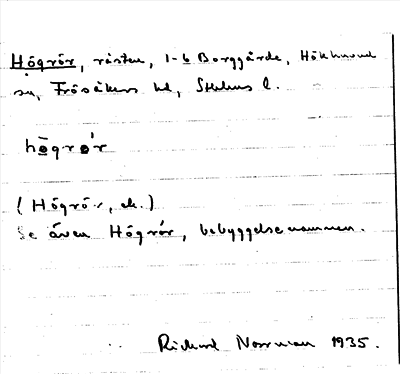 Högrör, råsten, 1-6 Borggårde, Hökhuvud
sn, Frösåkers hd, Sthlms l.
högrör
(Högrör, ek.)
Se även Högrör, bebyggelsenamnen.
Richard Norrman 1935.